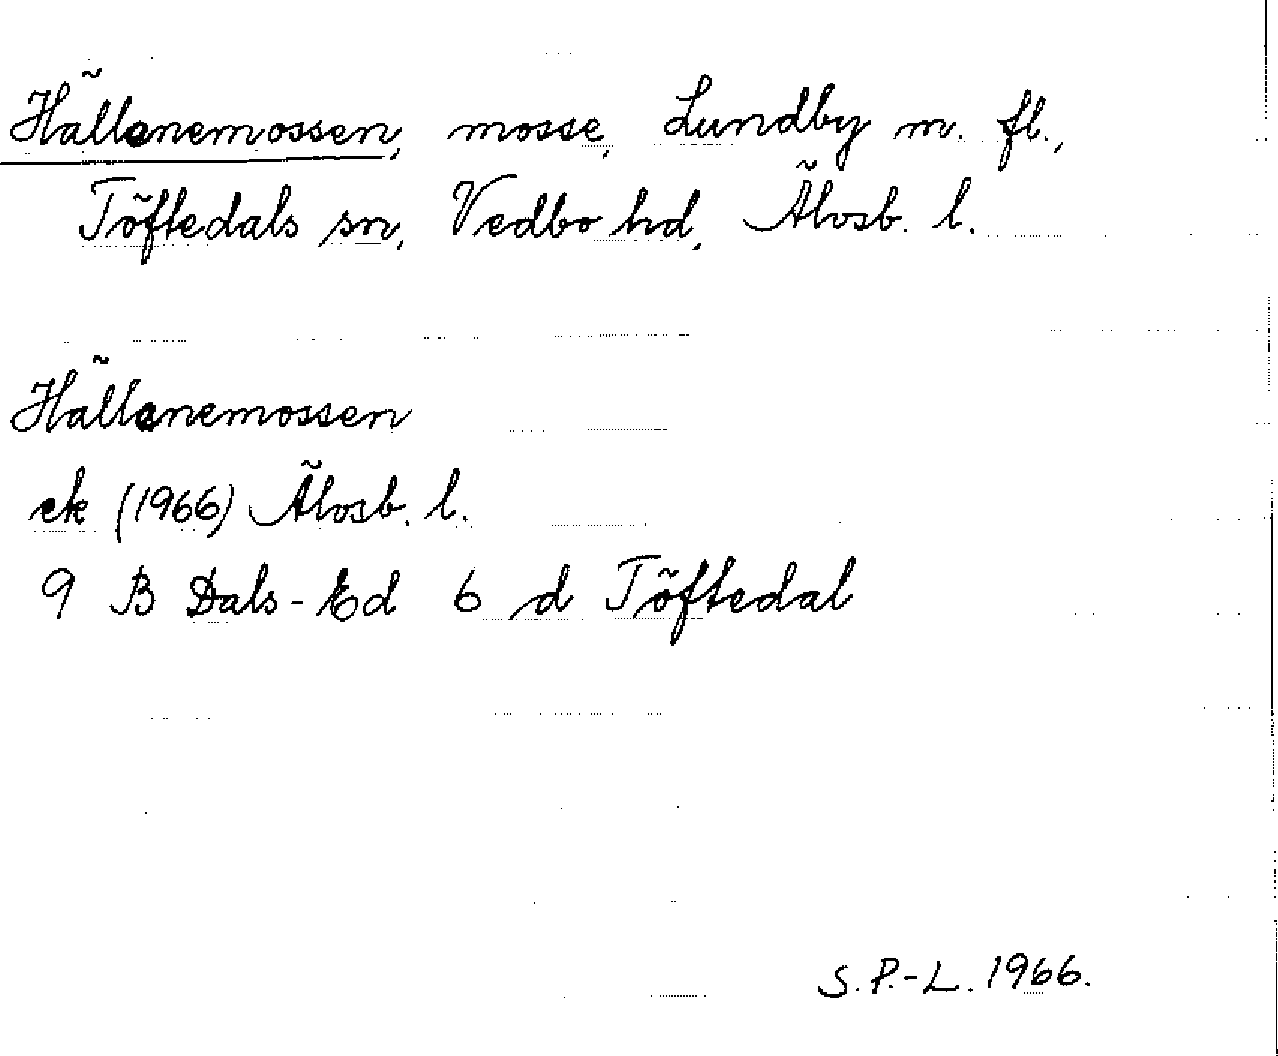 Hällanemossen, mosse, Lundby m. fl.,
Töftedals sn, Vedbo hd, Älvsb. l.
Hällanemossen
ek (1966) Älvsb. l.
9 B Dals-Ed 6 d Töftedal
S. P.-L. 1966.